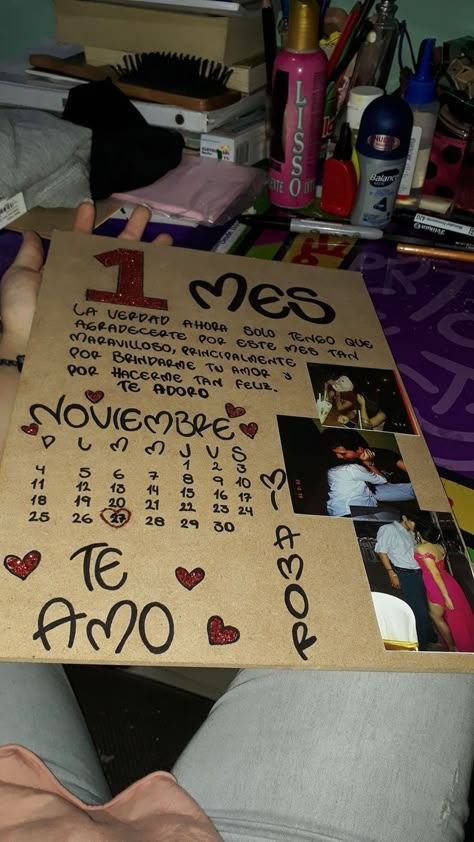 1 MES
LA VERDAD AHORA SOLO TENGO QUE
AGRADECERTE POR ESTE MES TAN
MARAVILLOSO, PRINCIPALMENTE
POR BRINDARME TU AMOR Y
POR HACERME TAN FELIZ.
TE ADORO
NOVIEMBRE
D L M M J V S
1 2 3
4 5 6 7 8 9 10
11 12 13 14 15 16 17
18 19 20 21 22 23 24
25 26 27 28 29 30
TE
AMO
LISSO
Balance